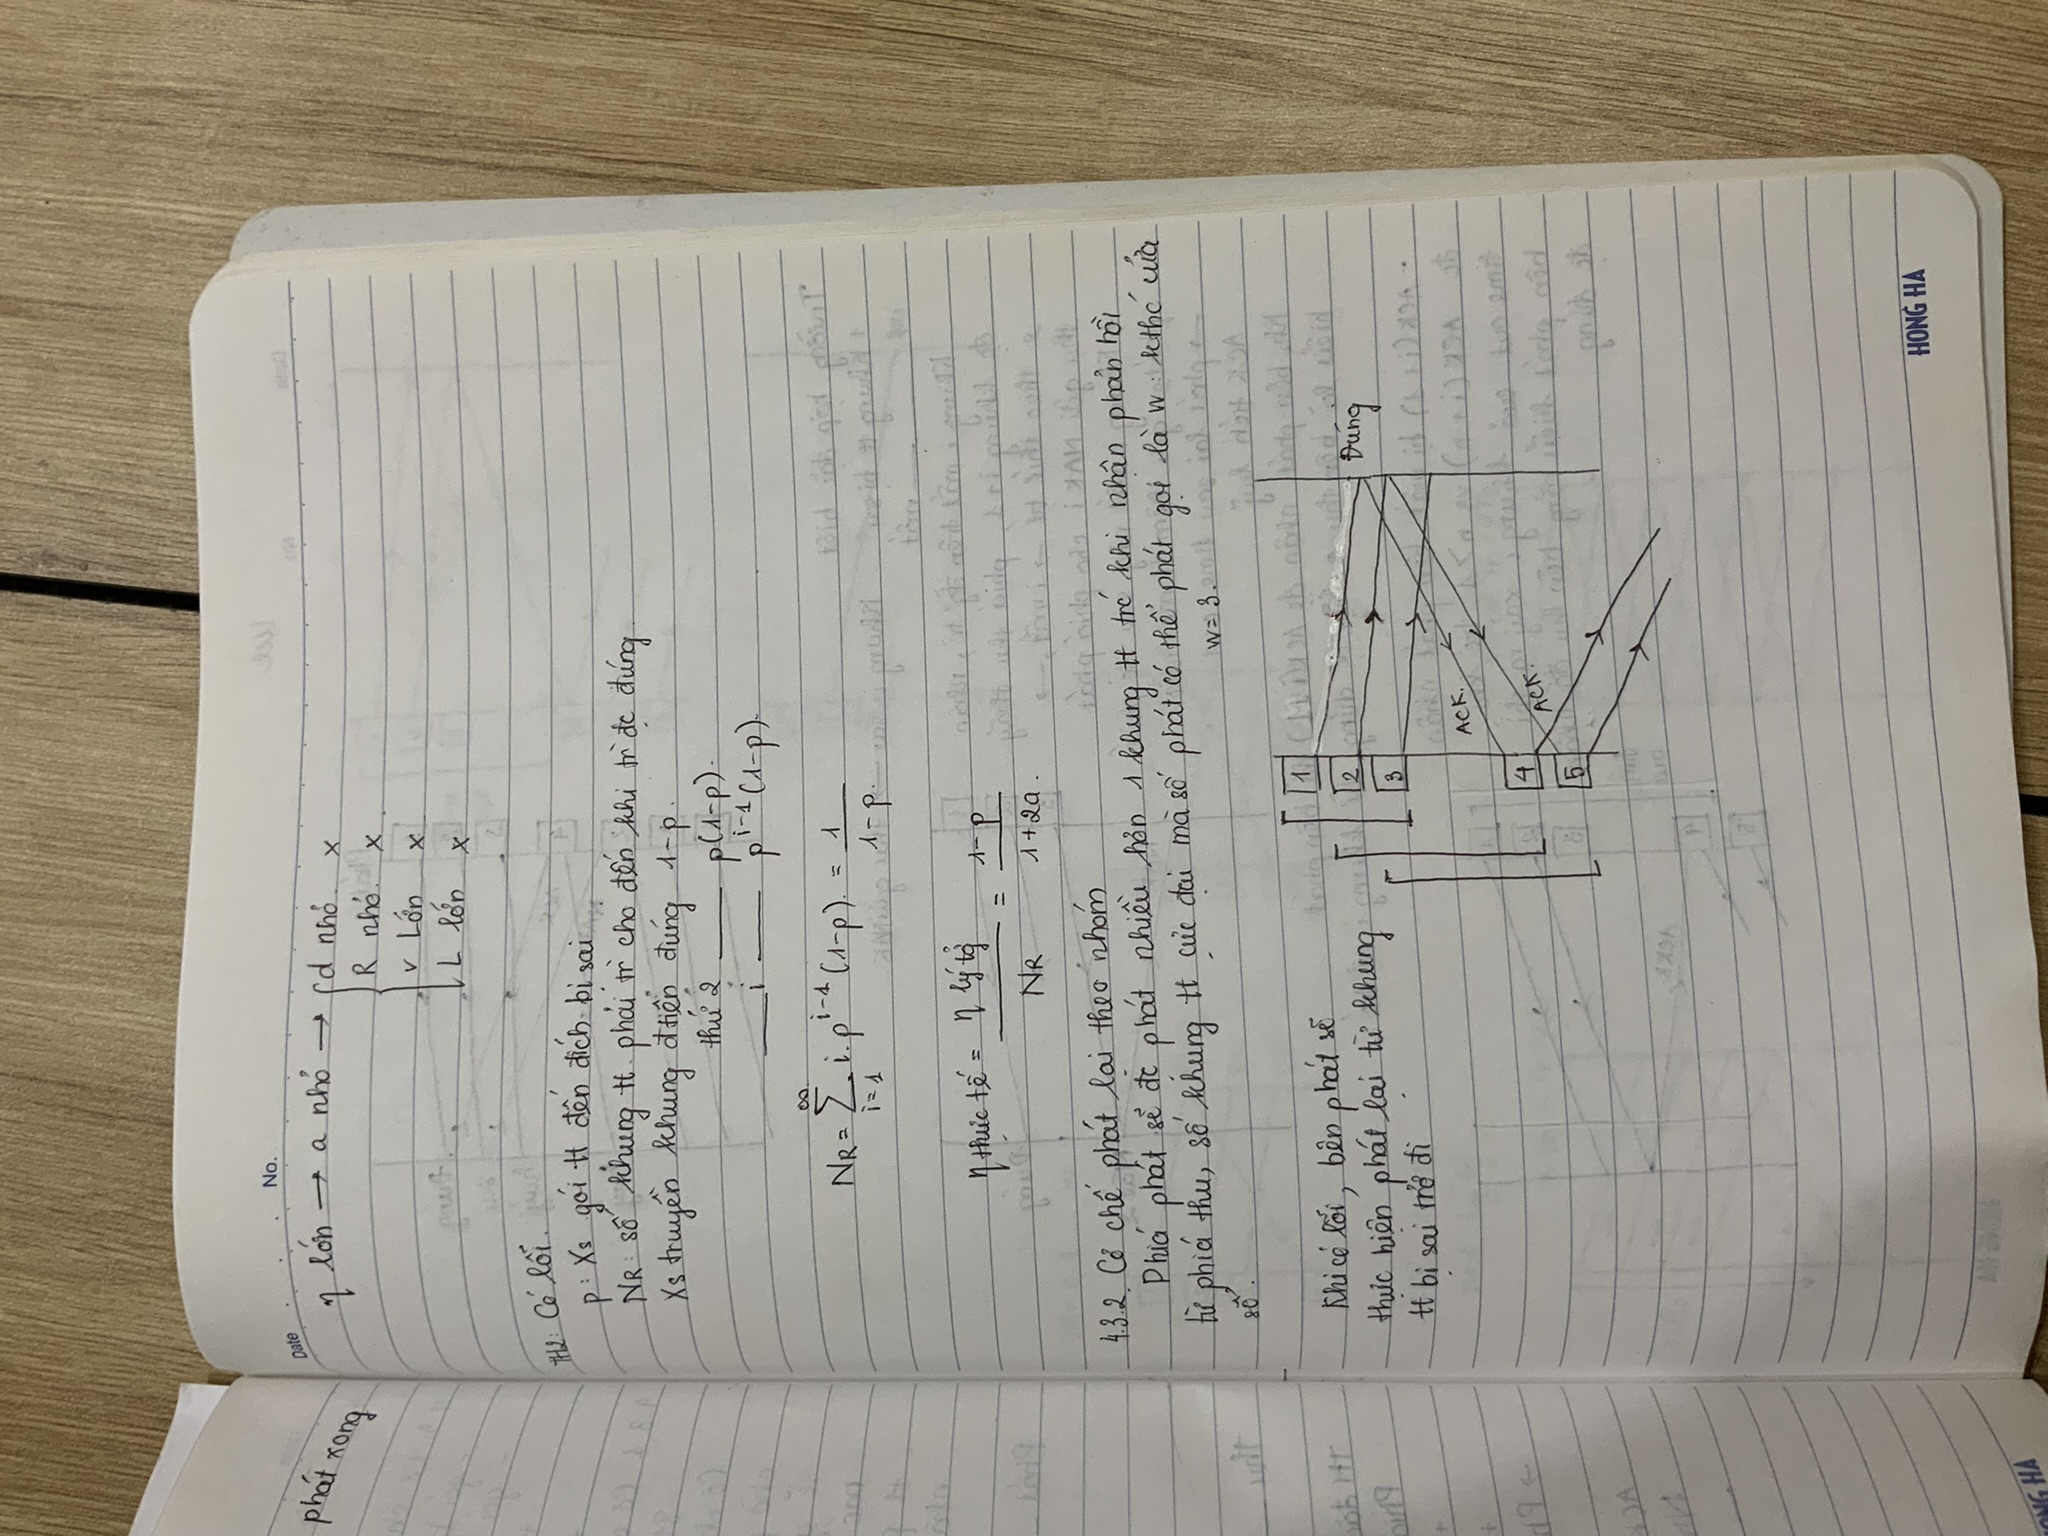 phát xong
Date No.
η lớn → a nhỏ → d nhỏ. x
R nhỏ. x
v Lớn x
L lớn x
TH2: Có lỗi.
p: Xs gói tt đến đích bị sai
NR: số khung tt phải tr` cho đến khi tr` đc đúng.
Xs truyền khung đtiên đúng 1-p.
thứ 2 —— p(1-p).
—— i —— p^{i-1}(1-p).
NR = ∑_{i=1}^{∞} i.p^{i-1}(1-p). = 1/(1-p).
η thực tế = η lý tg̉ / NR = (1-p)/(1+2a).
4.3.2. Cơ chế phát lại theo nhóm
Phía phát sẽ đc phát nhiều hơn 1 khung tt trc khi nhận phản hồi
từ phía thu, số khung tt cực đại mà số phát có thể phát gọi là w: kthc cửa
sổ.
w=3.
Khi có lỗi, bên phát sẽ
thực hiện phát lại từ khung
tt bị sai trở đi
1
2
3
Đúng
ACK.
4
ACK.
5
HONG HA
ONG HA